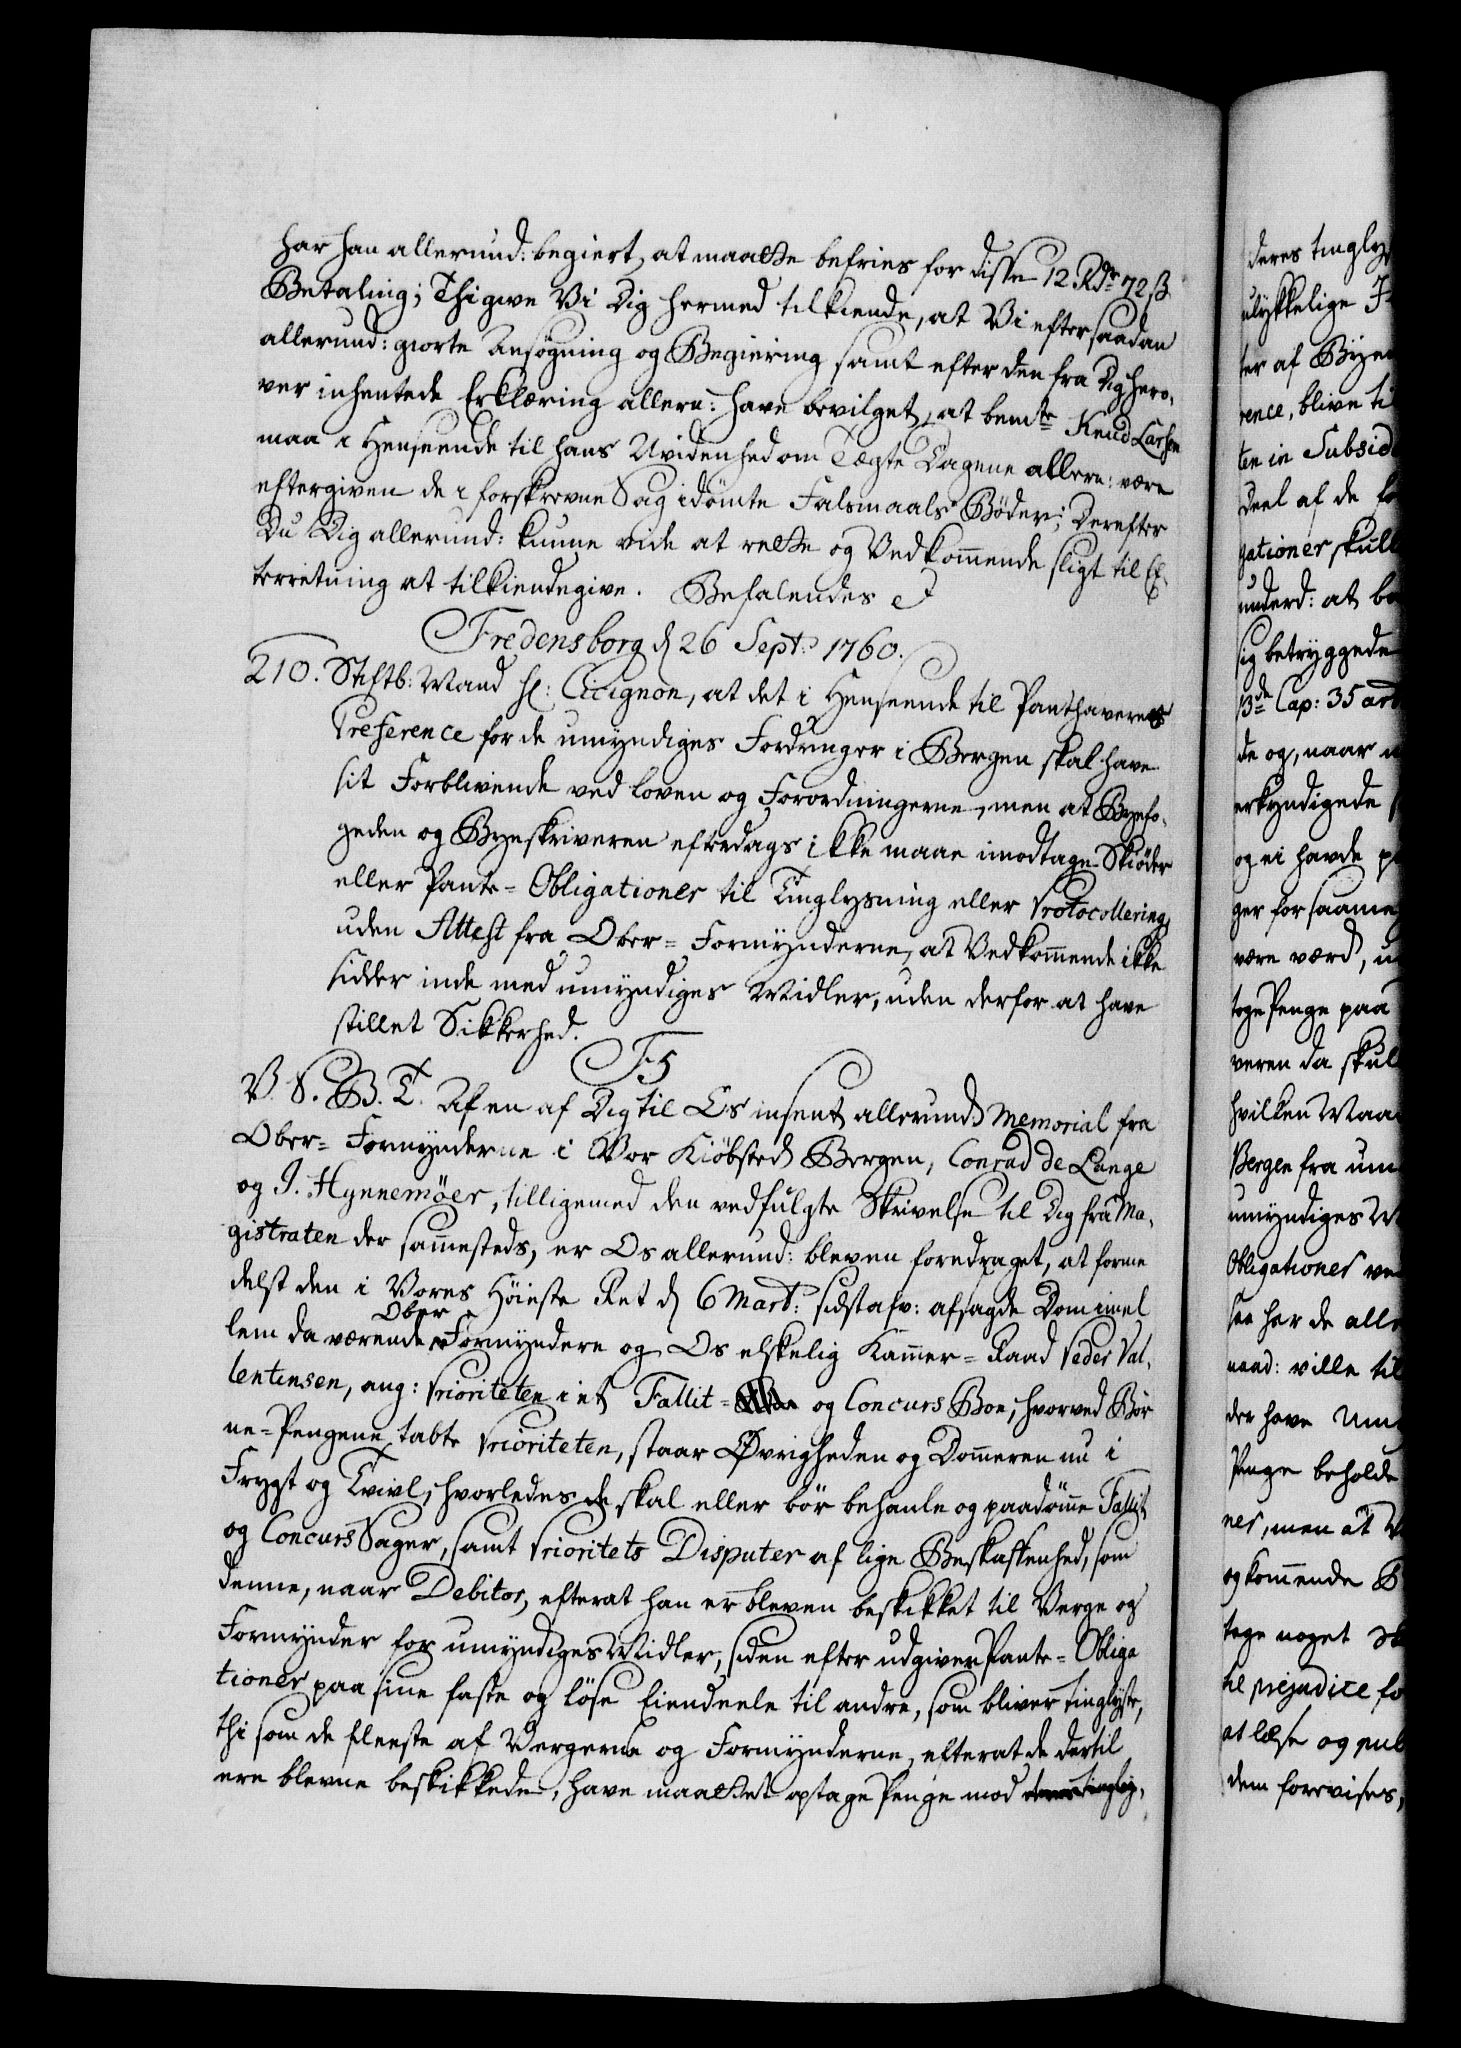 har han allerund: begiert, at maatte befries for disse 12 Rdr 72 ß
Betaling; Thi give Vi Dig hermed tilkiende, at Vi efter saadan
allerund: giorte Ansøgning og Begiering samt efter den fra Dig hero,
ver inhentede Erklæring allern: have bevilget, at bemte Knud Larsen
maa i Henseende til hans Uvidenhed om Tægte Dagene allern: være
eftergiven de i forskrevne Sag idömte Falsmaals Böder; Derefter
Du Dig allerund: kunne vide at rette og Vedkom̄ende sligt til Ef,
terretning at tilkiendegive. Befalendes
Fredensborg d 26 Sept: 1760.
210. Stiftb: Mand H: Cicignon, at det i Henseende til Panthavernes
Preference for de umyndiges Fordringer i Bergen skal have
sit Forblivende ved loven og Forordningerne, men at Byefo,
geden og Byeskriveren efterdags ikke maae imodtage Skiöder
eller Pante=Obligationer til Tinglysning eller Protocollering
uden Attest fra Ober=Formynderne, at Vedkom̄ende ikke
sidder inde med umyndiges Midler, uden derfor at have
stillet Sikkerhed.
F5
V. S. B. T. Af en af Dig til Os insent allerund Memorial fra
Ober=Formynderne i Vor Kiöbsted Bergen, Conrad de Lange
og J. Hynnemöer, tilligemed den vedfulgte Skrivelse til Dig fra Ma,
gistraten der sam̄esteds, er Os allerund: bleven foredraget, at forme
delst den i Vores Höieste Ret d 6 Mart: sidstafv: afsagde Dom imel
lem da værende Ober Formyndere og Os elskelig Kam̄er=Raad Peder Val,
lentinsen, ang: Prioriteten i et Fallit= og Concurs Boe, hvorved Bör
ne=Pengene tabte Prioriteten, staar Øvrigheden og Dom̄eren nu i
Frygt og Tvivl, hvorledes de skal eller bör behanle og paadöm̄e Fallit
og Concurs Sager, samt Prioritets Disputer af lige Beskaffenhed, som
denne, naar Debitor, efterat han er bleven beskikket til Verge og
Formynder for umyndiges Midler, siden efter udgiver Pante=Obliga
tioner paa sine faste og löse Eiendeele til andre, som bliver tinglyste,
thi som de fleeste af Vergerne og Formynderne, efterat de dertil
ere blevne beskikkede, have maattet optage Penge mod
deres tingly
ulykkelige
ter af Byen
rence, blive ti
ten in Subsid
deel af de fo
gationer skull
underd: at be
sig betryggede
13de Cap: 35 art
de og, naar
erkyndigede
og ei havde
ger for saame
være værd, u
toge Penge paa
veren da skul
hvilken Maa
Bergen fra um
umyndiges M
Obligationer ve
saa har de alle
naad: ville til
der have Um
Penge beholde
ner, men at
og kom̄ende B
tage noget
til prejudice fo
at læse og pul
dem forevises,